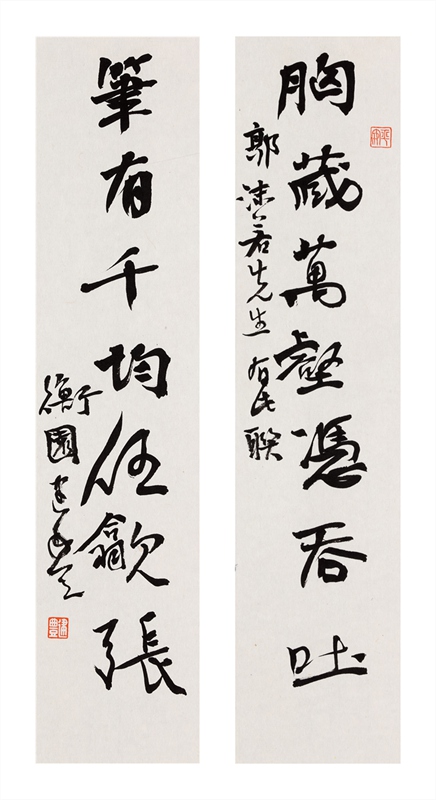 胸藏萬壑憑吞吐
郭沫若先生有此聯
筆有千均任歙張
衡園建